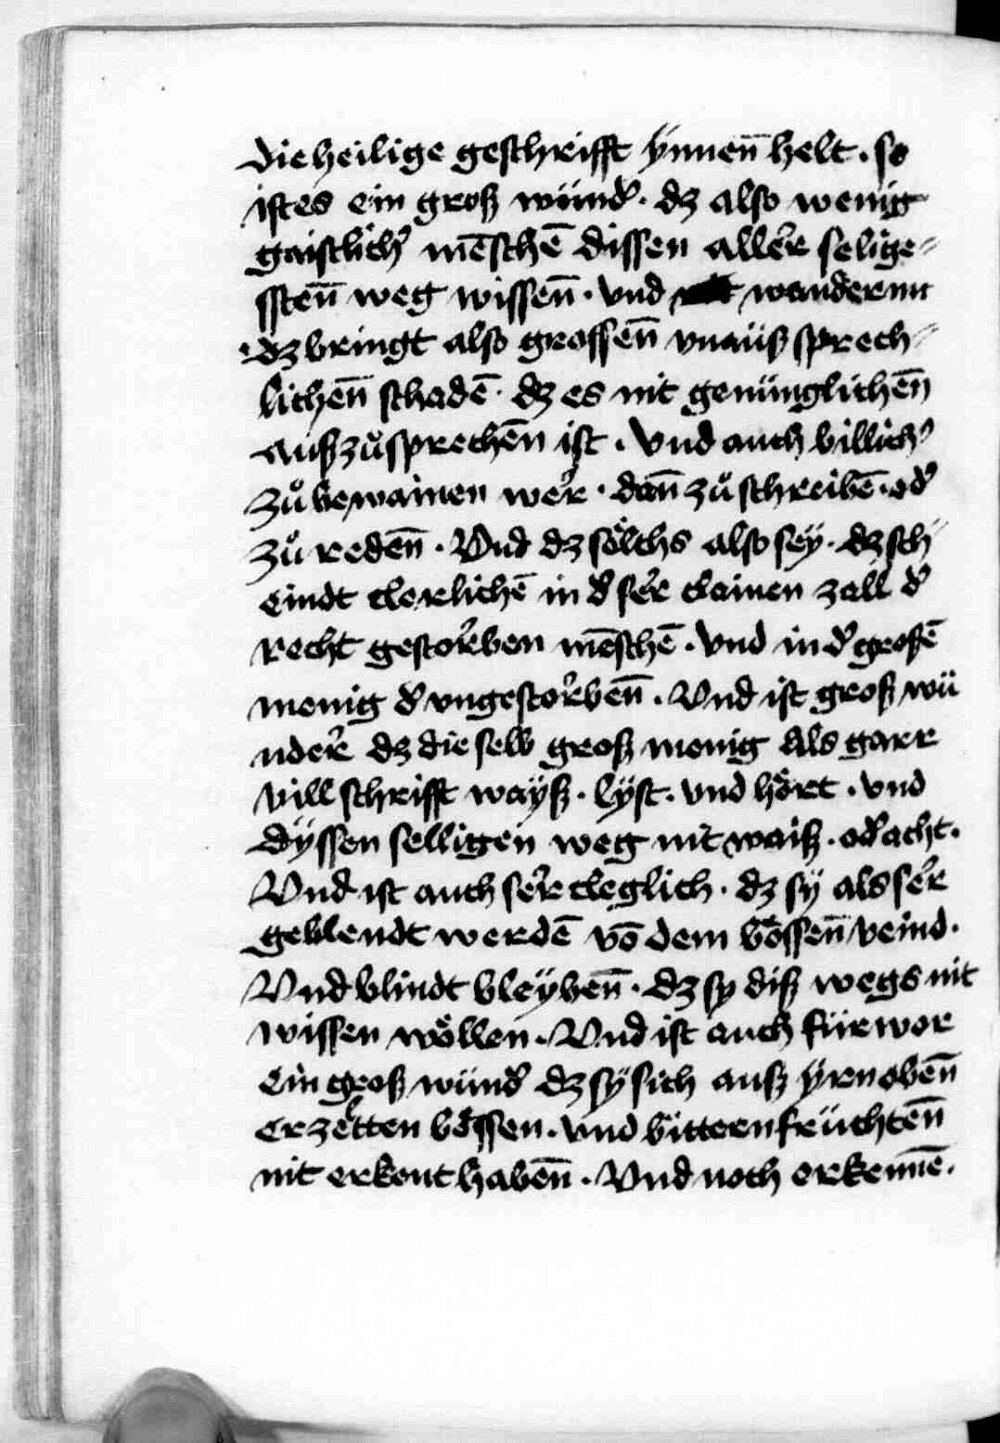 die heilige geschrifft ÿnnen̄ helt · so
ist es ein groß wünd' · dz also wenig
gaistlich' mēschē dissen aller selige⸗
ssten̄ weg wissen̄ · vnd wandern
dz bringt also grossen̄ vnaüß sprech⸗
lichen̄ schadē · dz es nit genünglichen̄
auß zů sprechen̄ ist · Vnd auch billich'
zů bewainen wer · dan̄ zů schreibē · od'
zů reden̄ · Vnd dz sölchs also sey · dz sch⸗
eindt clerlichē in d' ser clainen zall d'
recht gestorben mēschē · Vnd in d' großē
menig d' vngestorben̄ · Vnd ist groß wü
nder dz die selb groß menig als garr
vill schrifft wayß · lÿst · vnd hört · vnd
dÿssen selligen weg nit waiß · od' acht ·
Vnd ist auch ser cleglich · dz sÿ als ser
geblendt werdē vō dem bössen̄ veind ·
Vnd blindt bleÿben̄ · dz sy diß wegs nit
wissen wöllen · Vnd ist auch fürwor
ein groß wünd' dz sÿ sich auß ÿrn oben̄
erzelten bössen · vnd bittern früchten̄
nit erkent haben̄ · Vnd noch erkennē ·